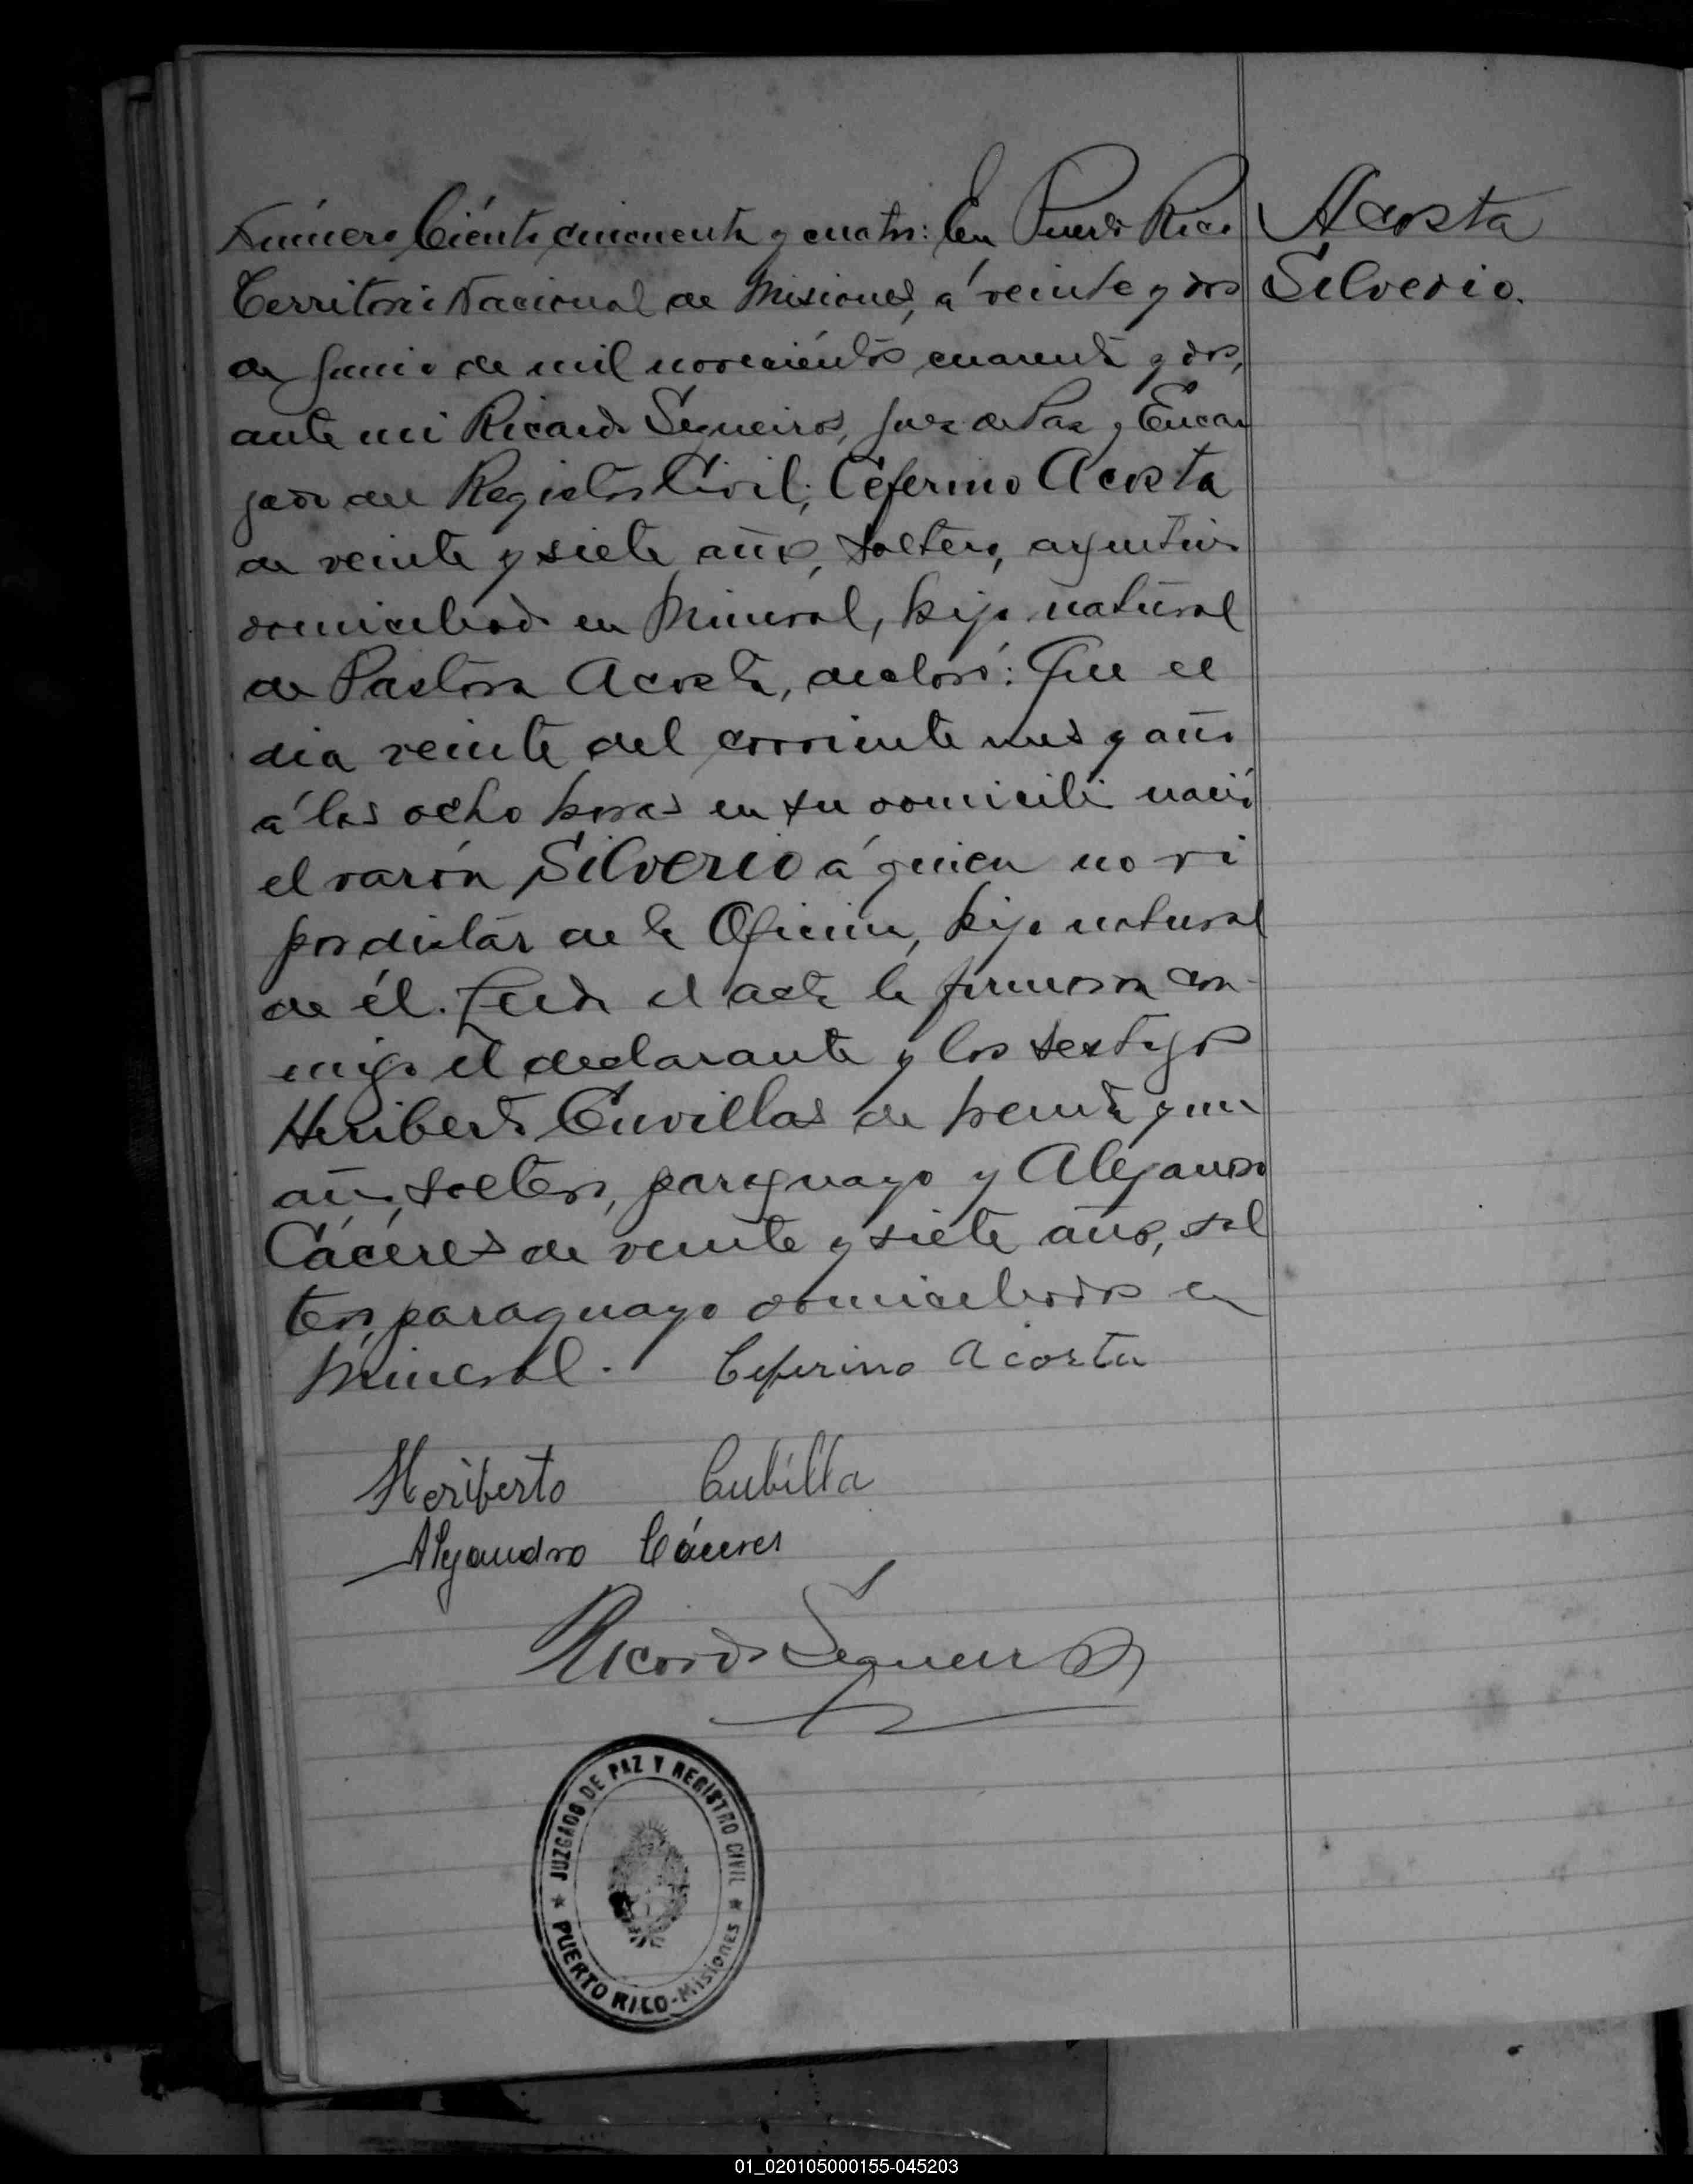 Número Ciento cincuenta y cuatro: En Puerto Rico
Territorio Nacional de Misiones, á veinte y dos
de Junio de mil novecientos cuarenta y dos,
ante mi Ricardo Sequeiros, Juez de Paz y Encar
gado del Registro Civil; Ceferino Acosta
de veinte y siete años, soltero, argentino
domiciliado en Mineral, hijo natural
de Pastora Acosta, declaró: Que el
dia veinte del corriente mes y año
á las ocho horas en su domicilio nació
el varón Silverio á quien no vi
por distar de la Oficina, hijo natural
de él. Leida el acta la firmaron con-
migo el declarante y los testigos
Heriberto Cuvillas de treinta y un
años, soltero, paraguayo y Alejandro
Cáceres de veinte y siete años, sol
tero, paraguayo domiciliados en
Mineral. Ceferino Acosta
Heriberto Cubilla
Alejandro Cáceres
Ricardo Sequeiros
Acosta
Silverio.
JUZGADO DE PAZ Y REGISTRO CIVIL
PUERTO RICO-Misiones
01_020105000155-045203